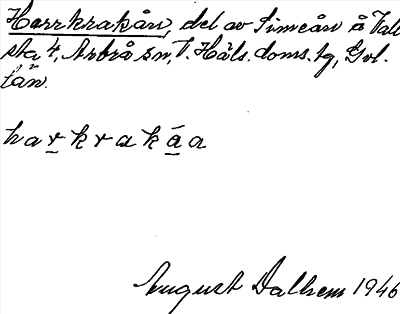 Harrkrakån, del av Simeån å Vall
sta 4, Arbrå sn, V. Häls. doms. tg, Gvl.
län.
harkrakáa
August Dalhem 1946